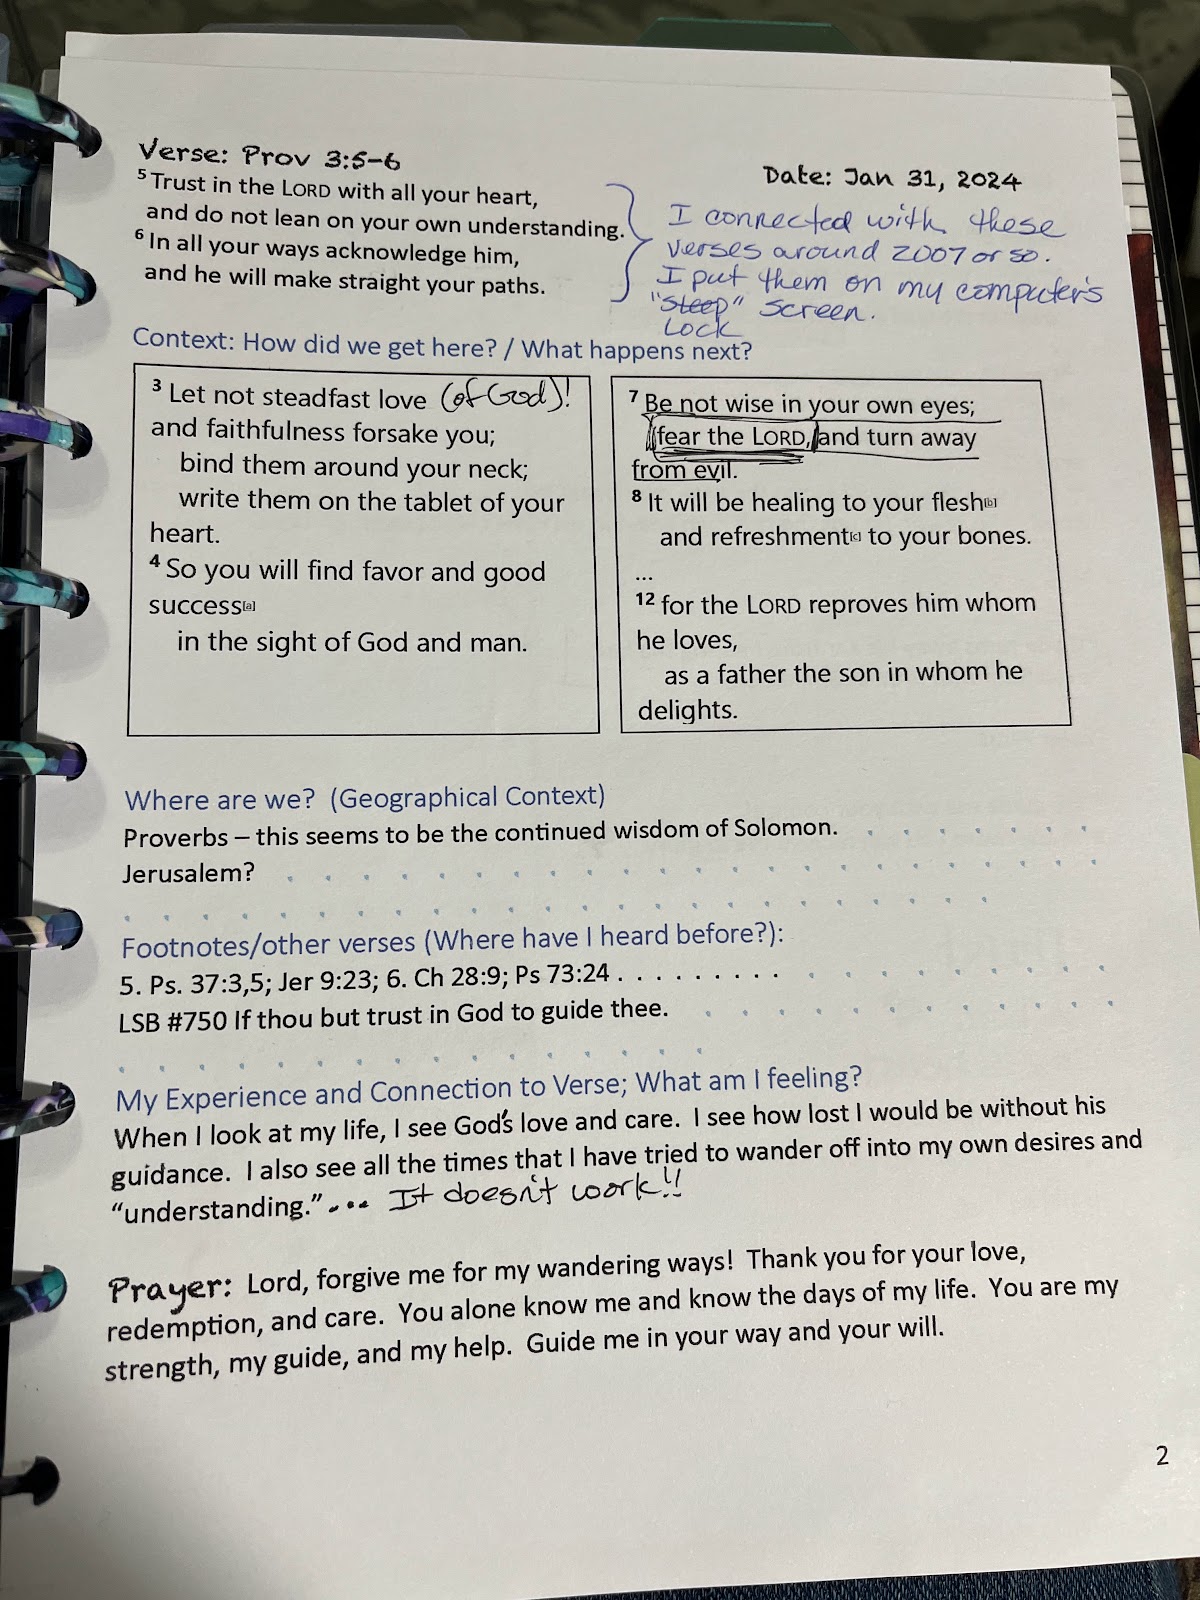 Verse: Prov 3:5-6
Date: Jan 31, 2024
5 Trust in the LORD with all your heart,
and do not lean on your own understanding.
6 In all your ways acknowledge him,
and he will make straight your paths.
I connected with these
verses around 2007 or so.
I put them on my computer's
"Sleep" screen.
Lock
Context: How did we get here? / What happens next?
3 Let not steadfast love (of God)!
and faithfulness forsake you;
bind them around your neck;
write them on the tablet of your
heart.
4 So you will find favor and good
success[a]
in the sight of God and man.
7 Be not wise in your own eyes;
fear the LORD, and turn away
from evil.
8 It will be healing to your flesh[b]
and refreshment[c] to your bones.
...
12 for the LORD reproves him whom
he loves,
as a father the son in whom he
delights.
Where are we? (Geographical Context)
Proverbs – this seems to be the continued wisdom of Solomon.
Jerusalem?
Footnotes/other verses (Where have I heard before?):
5. Ps. 37:3,5; Jer 9:23; 6. Ch 28:9; Ps 73:24 . . . . . . . . .
LSB #750 If thou but trust in God to guide thee.
My Experience and Connection to Verse; What am I feeling?
When I look at my life, I see God's love and care. I see how lost I would be without his
guidance. I also see all the times that I have tried to wander off into my own desires and
“understanding.”... It doesn't work!!
Prayer: Lord, forgive me for my wandering ways! Thank you for your love,
redemption, and care. You alone know me and know the days of my life. You are my
strength, my guide, and my help. Guide me in your way and your will.
2